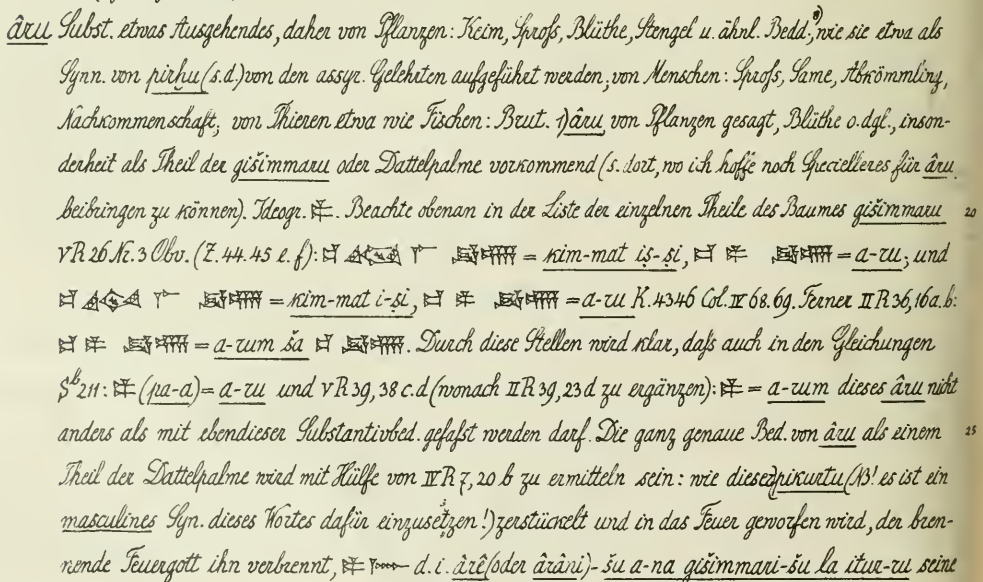 âru Subst. etwas Ausgehendes, daher von Pflanzen: Keim, Sproſs, Blüthe, Stengel u. ähnl. Bedd.⁸⁾, wie sie etwa als
Synn. von pirhu (s. d.) von den assyr. Gelehrten aufgeführt werden, von Menschen: Sproſs, Same, Abkömmling,
Nachkommenschaft, von Thieren etwa wie Fischen: Brut. 1) âru, von Pflanzen gesagt, Blüthe o. dgl., inson-
derheit als Theil der gišimmaru oder Dattelpalme vorkommend (s. dort, wo ich hoffe noch Specielleres für âru
beibringen zu können). Ideogr. . Beachte obenan in der Liste der einzelnen Theile des Baumes gišimmaru 20
VR 26 Nr. 3 Obv. (Z. 44. 45 e. f): = kim-mat iṣ-ṣi, = a-ru; und
= kim-mat i-ṣi, = a-ru K. 4346 Col. IV 68. 69. Ferner II R 36, 16 a. b:
= a-rum ša . Durch diese Stellen wird klar, daſs auch in den Gleichungen
Sᵇ 211: (pa-a) = a-ru und VR 39, 38 c. d (wonach II R 39, 23 d zu ergänzen): = a-rum dieses âru nicht
anders als mit ebendieser Substantivbed. gefaſst werden darf. Die ganz genaue Bed. von âru als einem 25
Theil der Dattelpalme wird mit Hülfe von IV R 7, 20 b zu ermitteln sein: wie dieser (NB! es ist ein
masculines Syn. dieses Wortes dafür einzusetzen!) zerstückelt und in das Feuer geworfen wird, der bren-
nende Feuergott ihn verbrennt, d. i. ârê (oder ârâni)-šu a-na gišimmari-šu la itur-ru seine